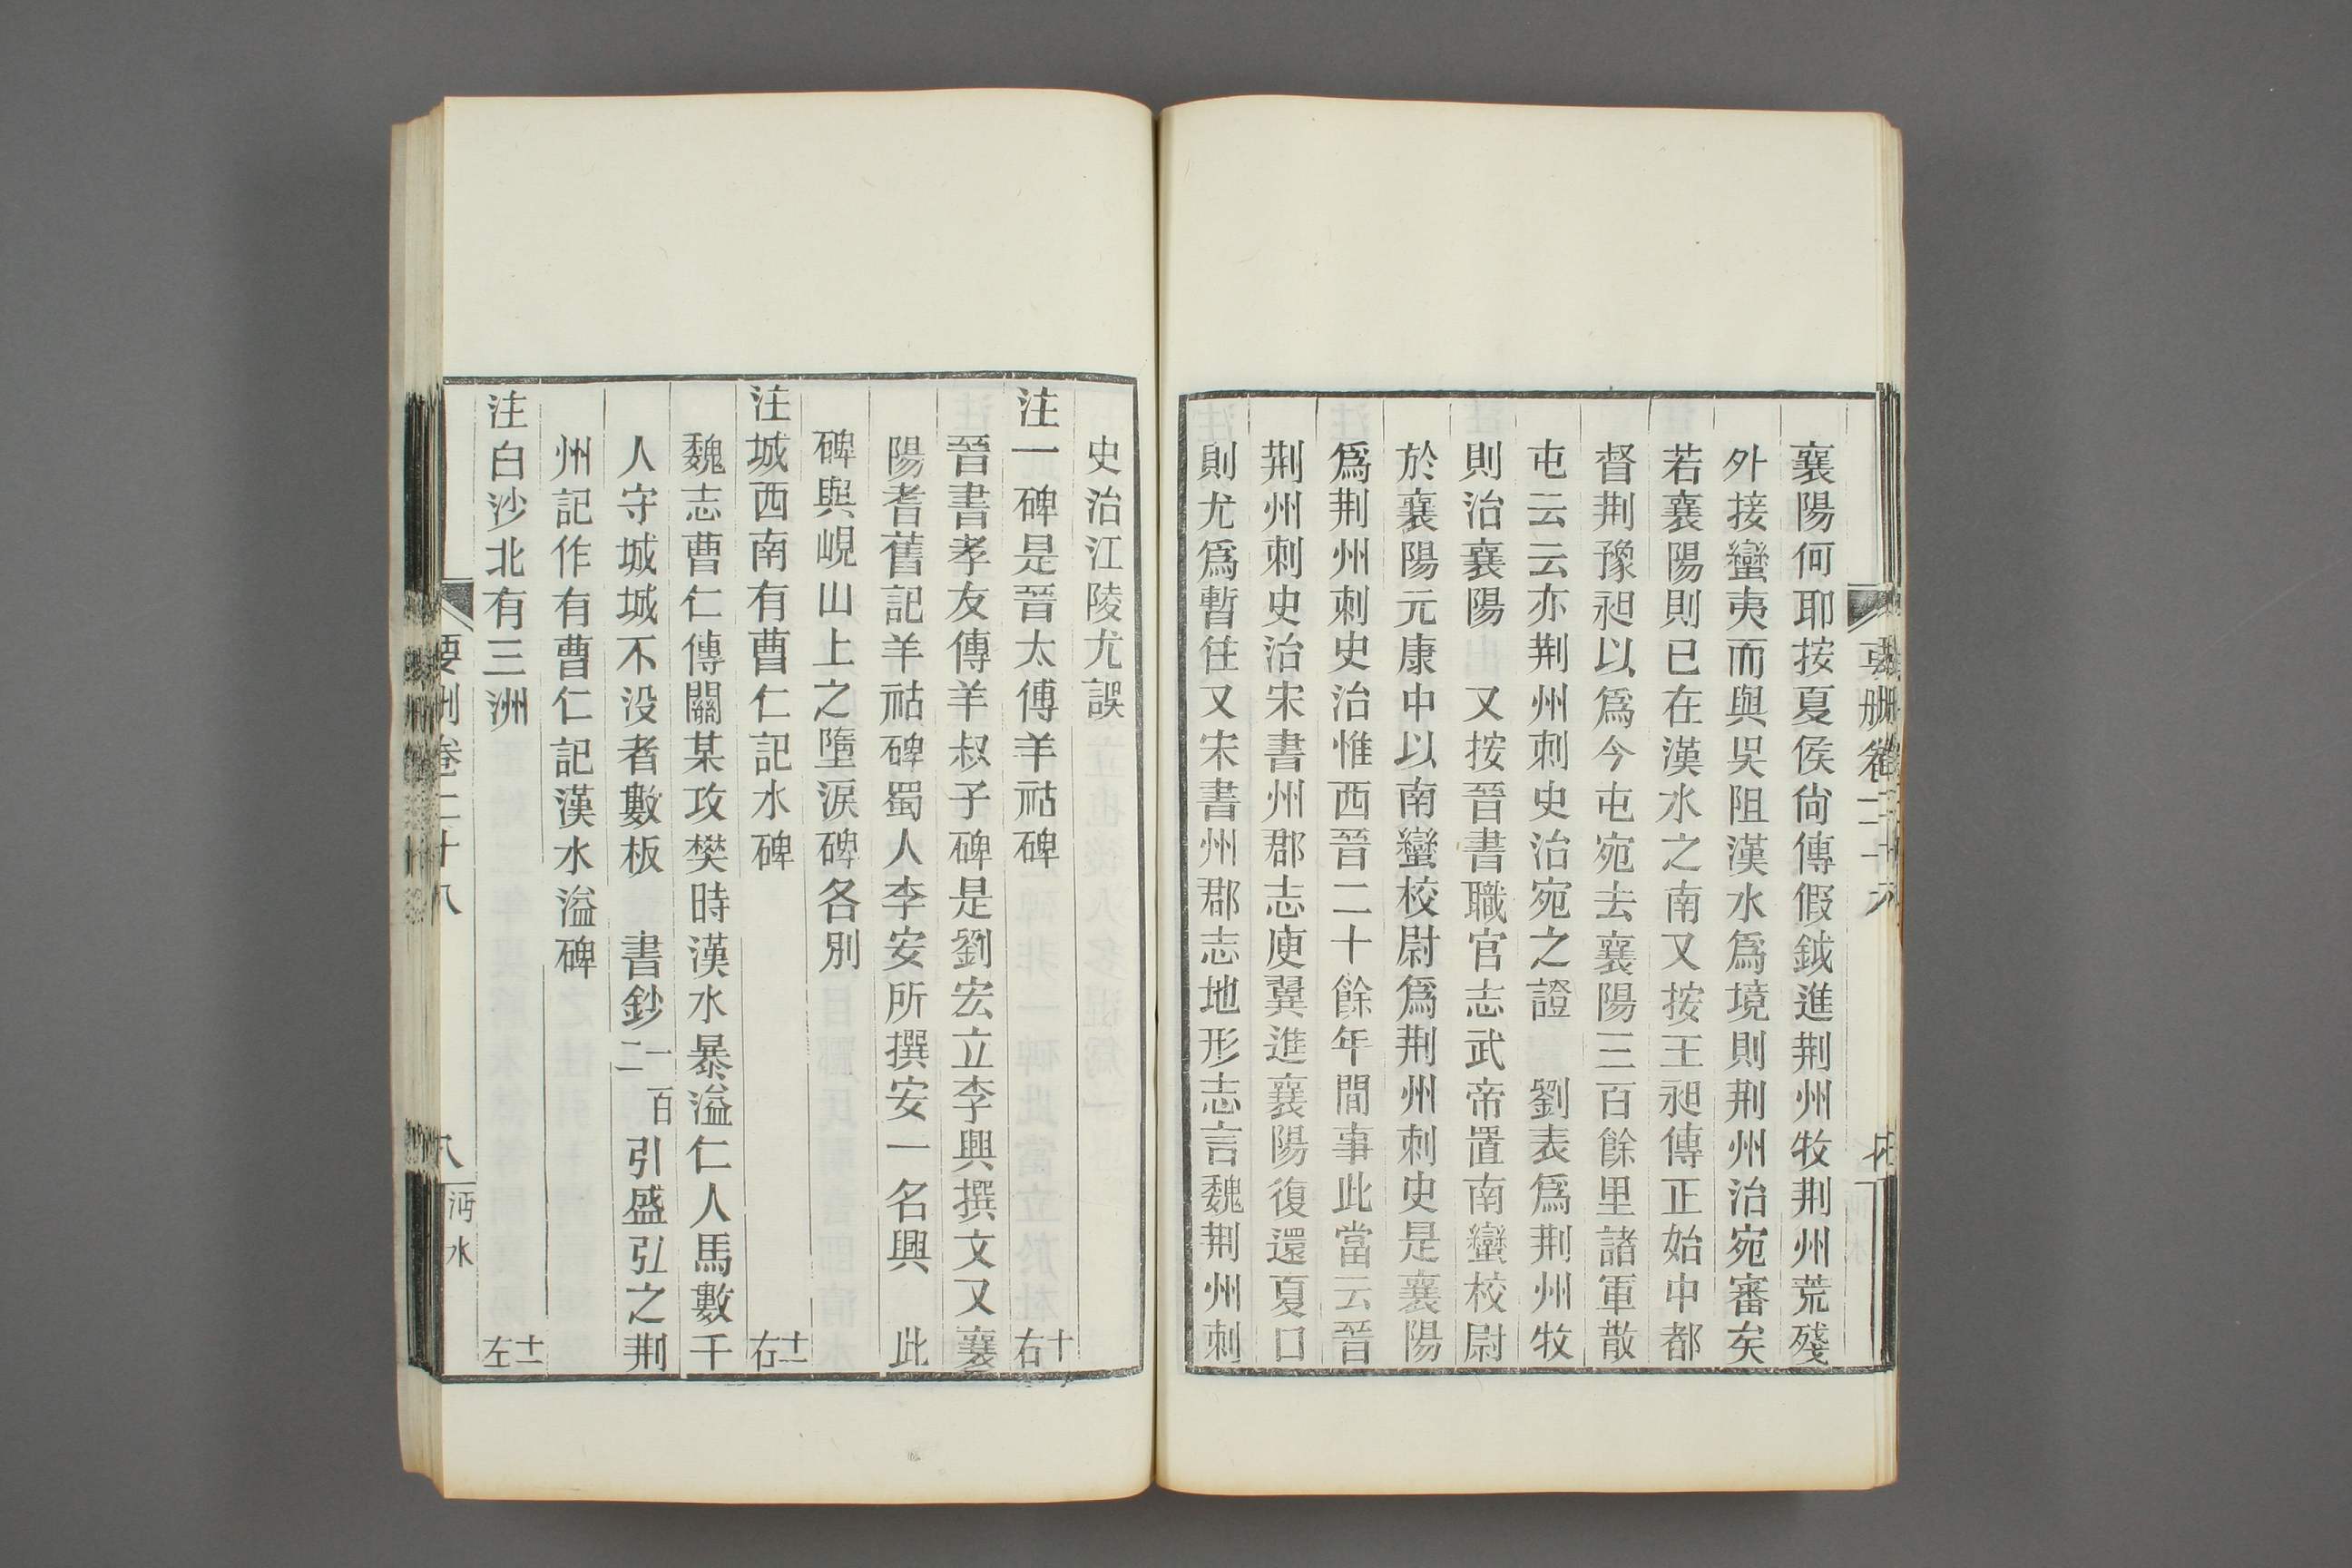 襄陽何耶按夏侯尙傳假鉞進荆州牧荆州荒殘
外接蠻夷而與吳阻漢水爲境則荆州治宛審矣
若襄陽則已在漢水之南又按王昶傳正始中都
督荆豫昶以爲今屯宛去襄陽三百餘里諸軍散
屯云云亦荆州刺史治宛之證　劉表爲荆州牧
則治襄陽　又按晉書職官志武帝置南蠻校尉
於襄陽元康中以南蠻校尉爲荆州刺史是襄陽
爲荆州刺史治惟西晉二十餘年間事此當云晉
荆州刺史治宋書州郡志庾翼進襄陽復還夏口
則尤爲暫住又宋書州郡志地形志言魏荆州刺
史治江陵尤誤
注一碑是晉太傅羊祜碑　十右
晉書孝友傳羊叔子碑是劉宏立李興撰文又襄
陽耆舊記羊祜碑蜀人李安所撰安一名興　此
碑與峴山上之墮淚碑各別
注城西南有曹仁記水碑　十一右
魏志曹仁傳關某攻樊時漢水暴溢仁人馬數千
人守城城不没者數板　書鈔一百二引盛弘之荆
州記作有曹仁記漢水溢碑
注白沙北有三洲　十一左
要刪卷二十八　八　沔水